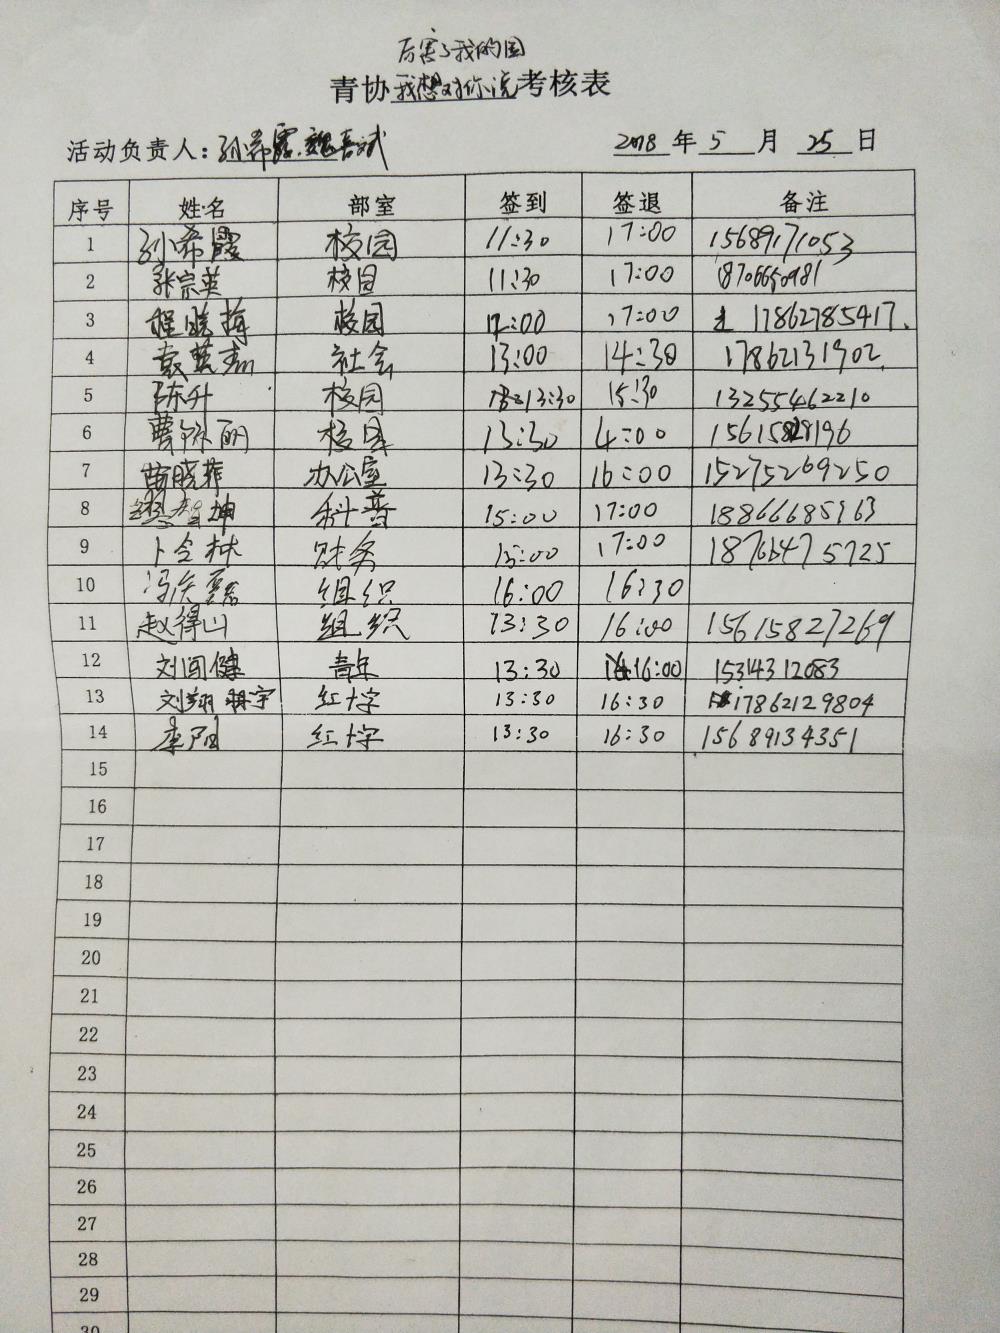 厉害了我的国
青协我想对你说考核表
活动负责人：孙希霞、 2018年5月25日
序号 姓名 部室 签到 签退 备注
1 孙希霞 校园 11:30 17:00 15689171053
2 张宗英 校园 11:30 17:00 18706650981
3 程晓梅 校园 12:00 17:00 17862785417.
4 社会 13:00 14:30 17862131902.
5 陈升 校园 13:30 15:30 13255462210
6 曹 丽 校园 13:30 4:00 15615828196
7 苗晓菲 办公室 13:30 16:00 15275269250
8 坤 科普 15:00 17:00 18866685963
9 卜令林 财务 15:00 17:00 18766475725
10 冯 磊 组织 16:00 16:30
11 赵得山 组织 13:30 16:00 15615827269
12 刘国健 青年 13:30 16:00 15314312083
13 刘翔宇 红十字 13:30 16:30 17862129804
14 李阳 红十字 13:30 16:30 15689134351
15
16
17
18
19
20
21
22
23
24
25
26
27
28
29
30